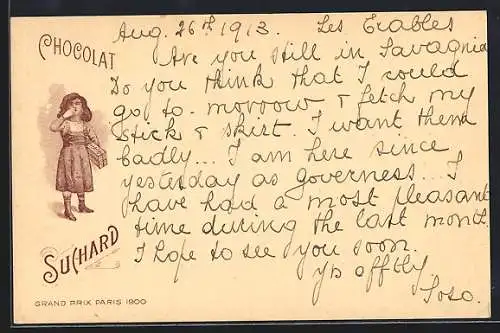 CHOCOLAT
SUCHARD
GRAND PRIX PARIS 1900
Aug. 26th 1913. Les Erables
Are you still in Savagnia
Do you think that I could
go to-morroow & fetch my
stick & skirt. I want them
badly... I am here since
yesterday as governess... I
have had a most pleasant
time during the last month.
I hope to see you soon.
yrs afftly
Soso.